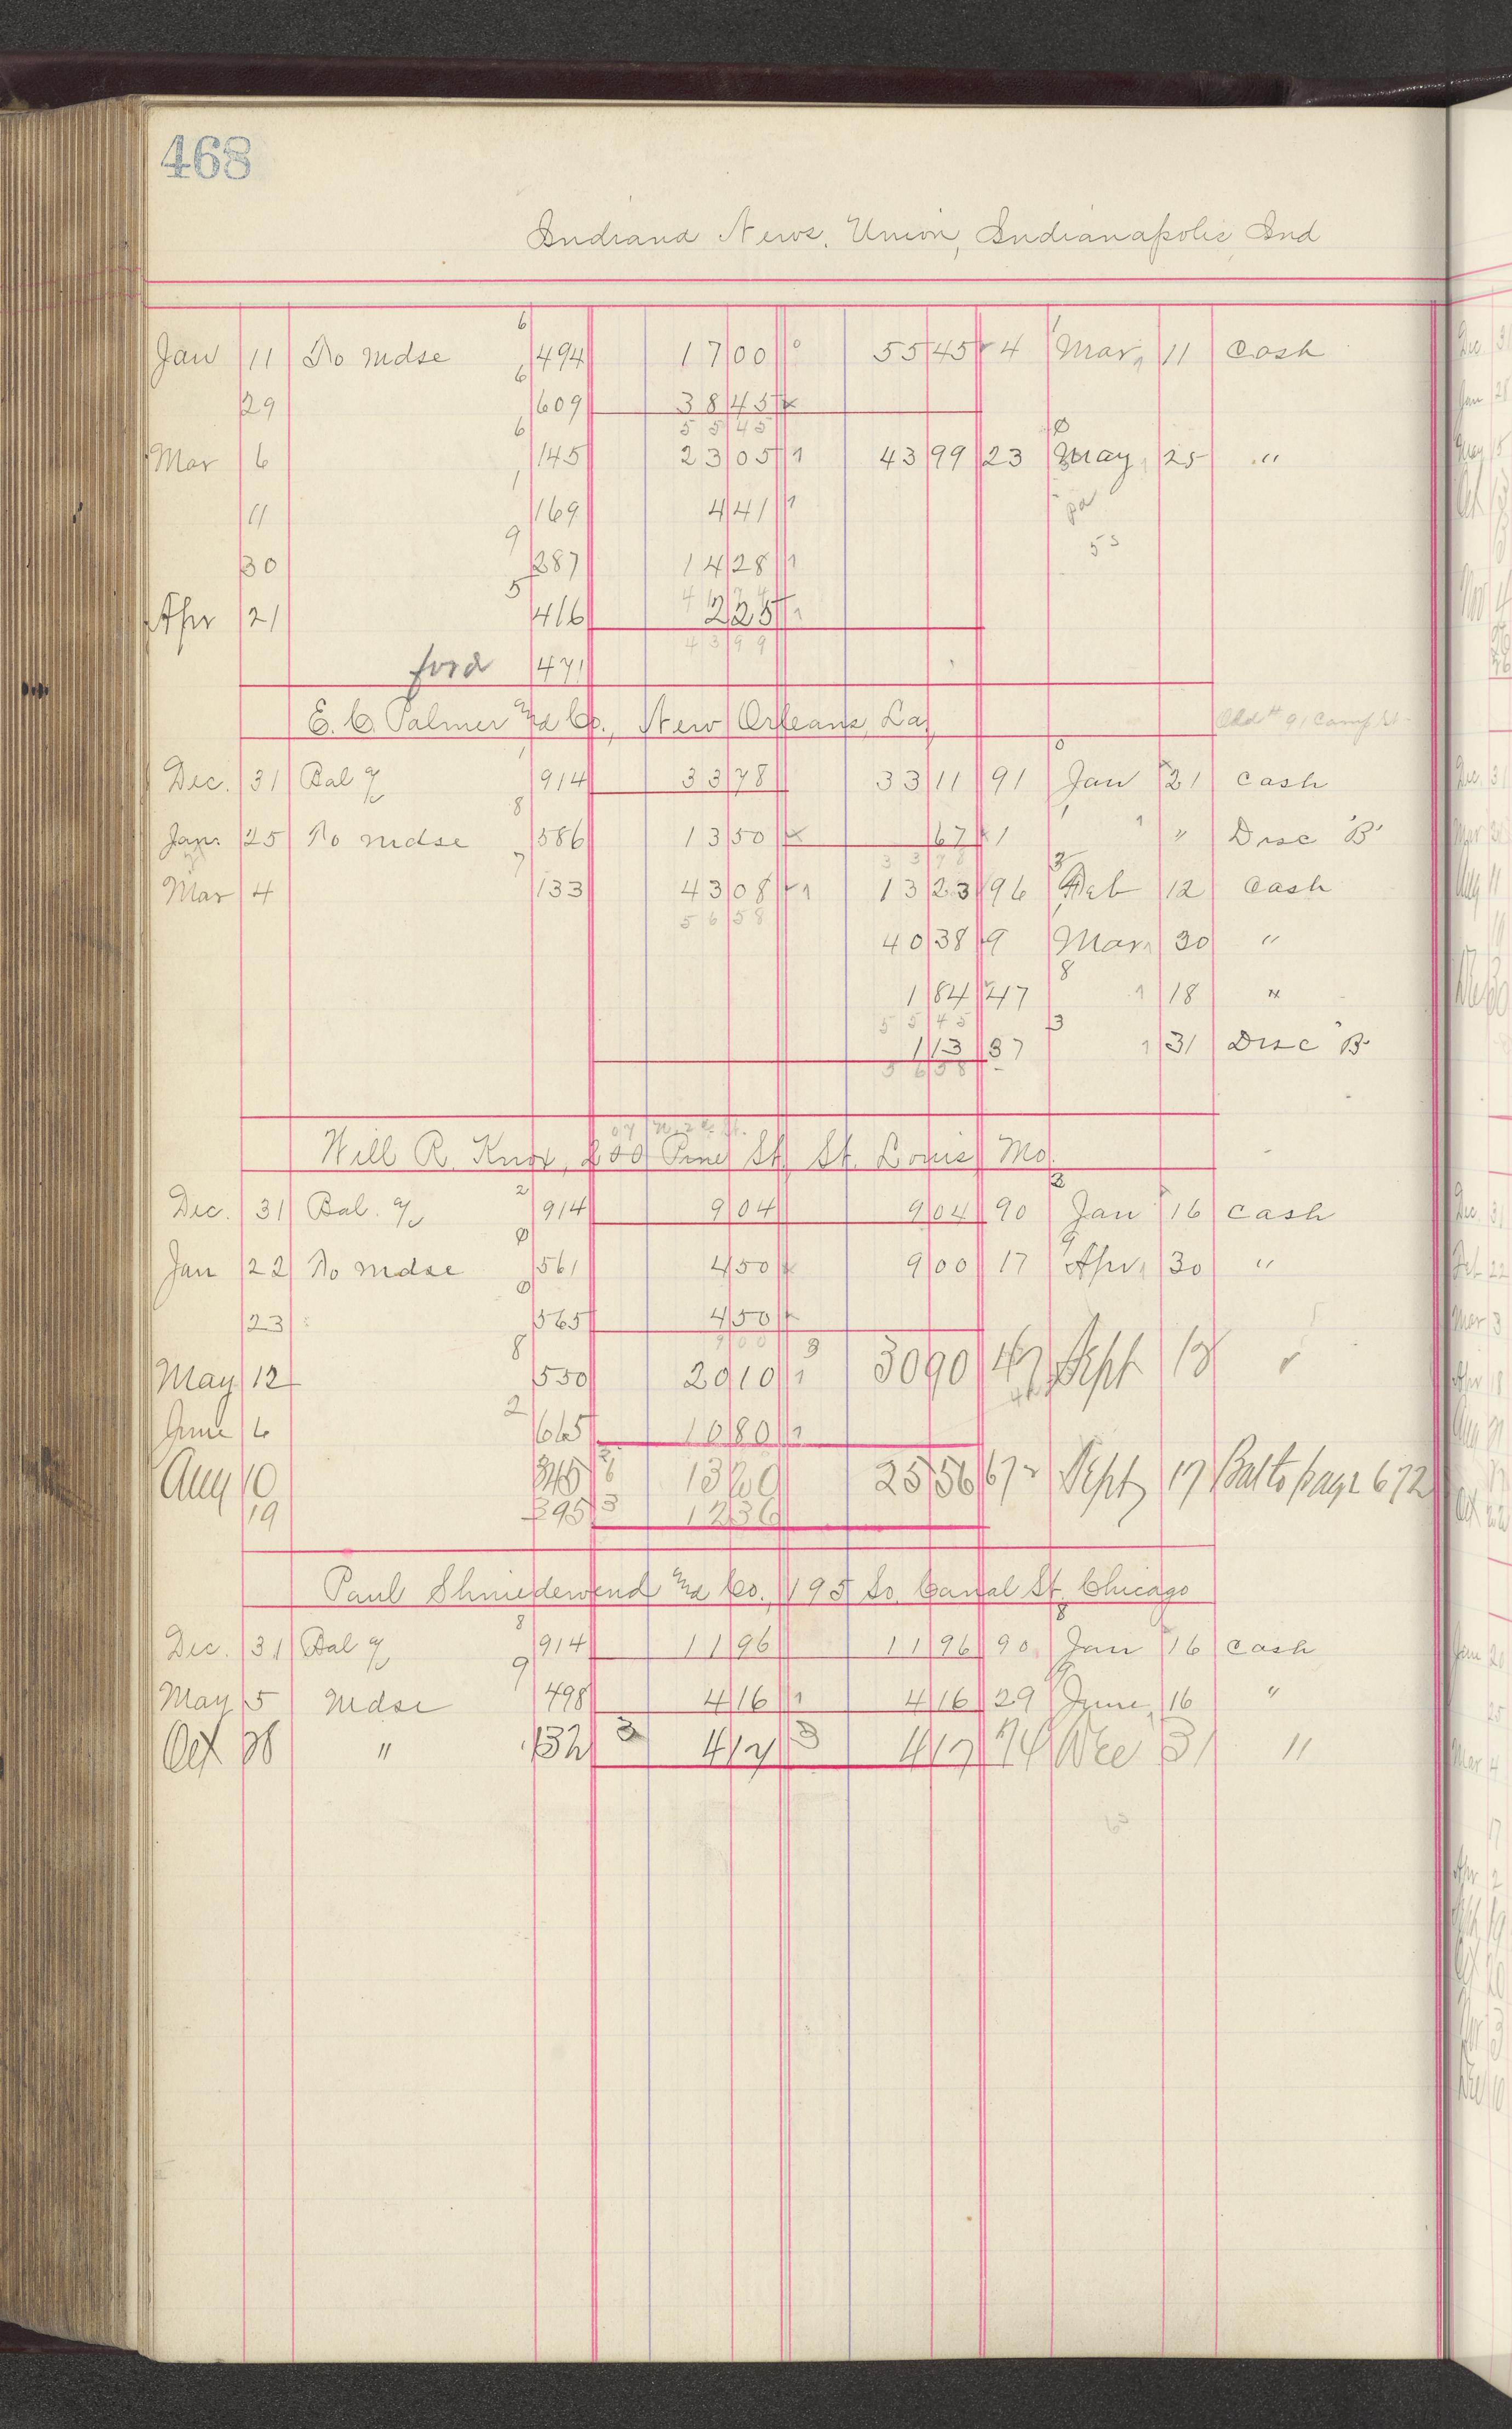 468
Indiana News. Union, Indianapolis Ind
6
Jan 11 To mdse 494 17 00 55 45 4 Mar, 11 Cash
6
29 609 38 45
55 45
6
Mar 6 145 23 05 1 43 99 23 May, 25 "
1
11 169 4 41 1 pd
9 53
30 287 14 28 1
5
Apr 21 416 2 25 1
43 99
ford 471
E. C. Palmer & Co., New Orleans, La, 91 Camp St.
Dec. 31 Bal % 914 33 78 33 11 91 Jan 21 Cash
8
Jan. 25 To mdse 586 13 50 67 1 " Disc "B"
7 33 78
Mar 4 133 43 08 1 13 23 96 Feb 12 Cash
56 58
40 38 9 Mar, 30 "
8
1 84 47 18 "
55 45 3
1 13 37 31 Disc "B"
56 58
Will R. Knox, 200 Pine St. St. Louis, Mo.
2
Dec. 31 Bal. % 914 9 04 9 04 90 Jan 16 Cash
Jan 22 To mdse 561 4 50 9 00 17 Apr, 30 "
23 565 4 50
9 00
8
May 12 550 20 10 1 30 90 Sept 18
2
June 6 665 10 80 1
Aug 10 345 13 20 25 56 67 Sept 17 Bal to page 672
19 395 3 12 36
Paul Shniedewend & Co., 195 So. Canal St. Chicago
8
Dec. 31 Bal % 914 11 96 11 96 90 Jan 16 Cash
9
May 5 mdse 498 4 16 1 4 16 29 June, 16 "
Oct 28 " 132 3 4 17 3 4 17 74 Dec 31 "